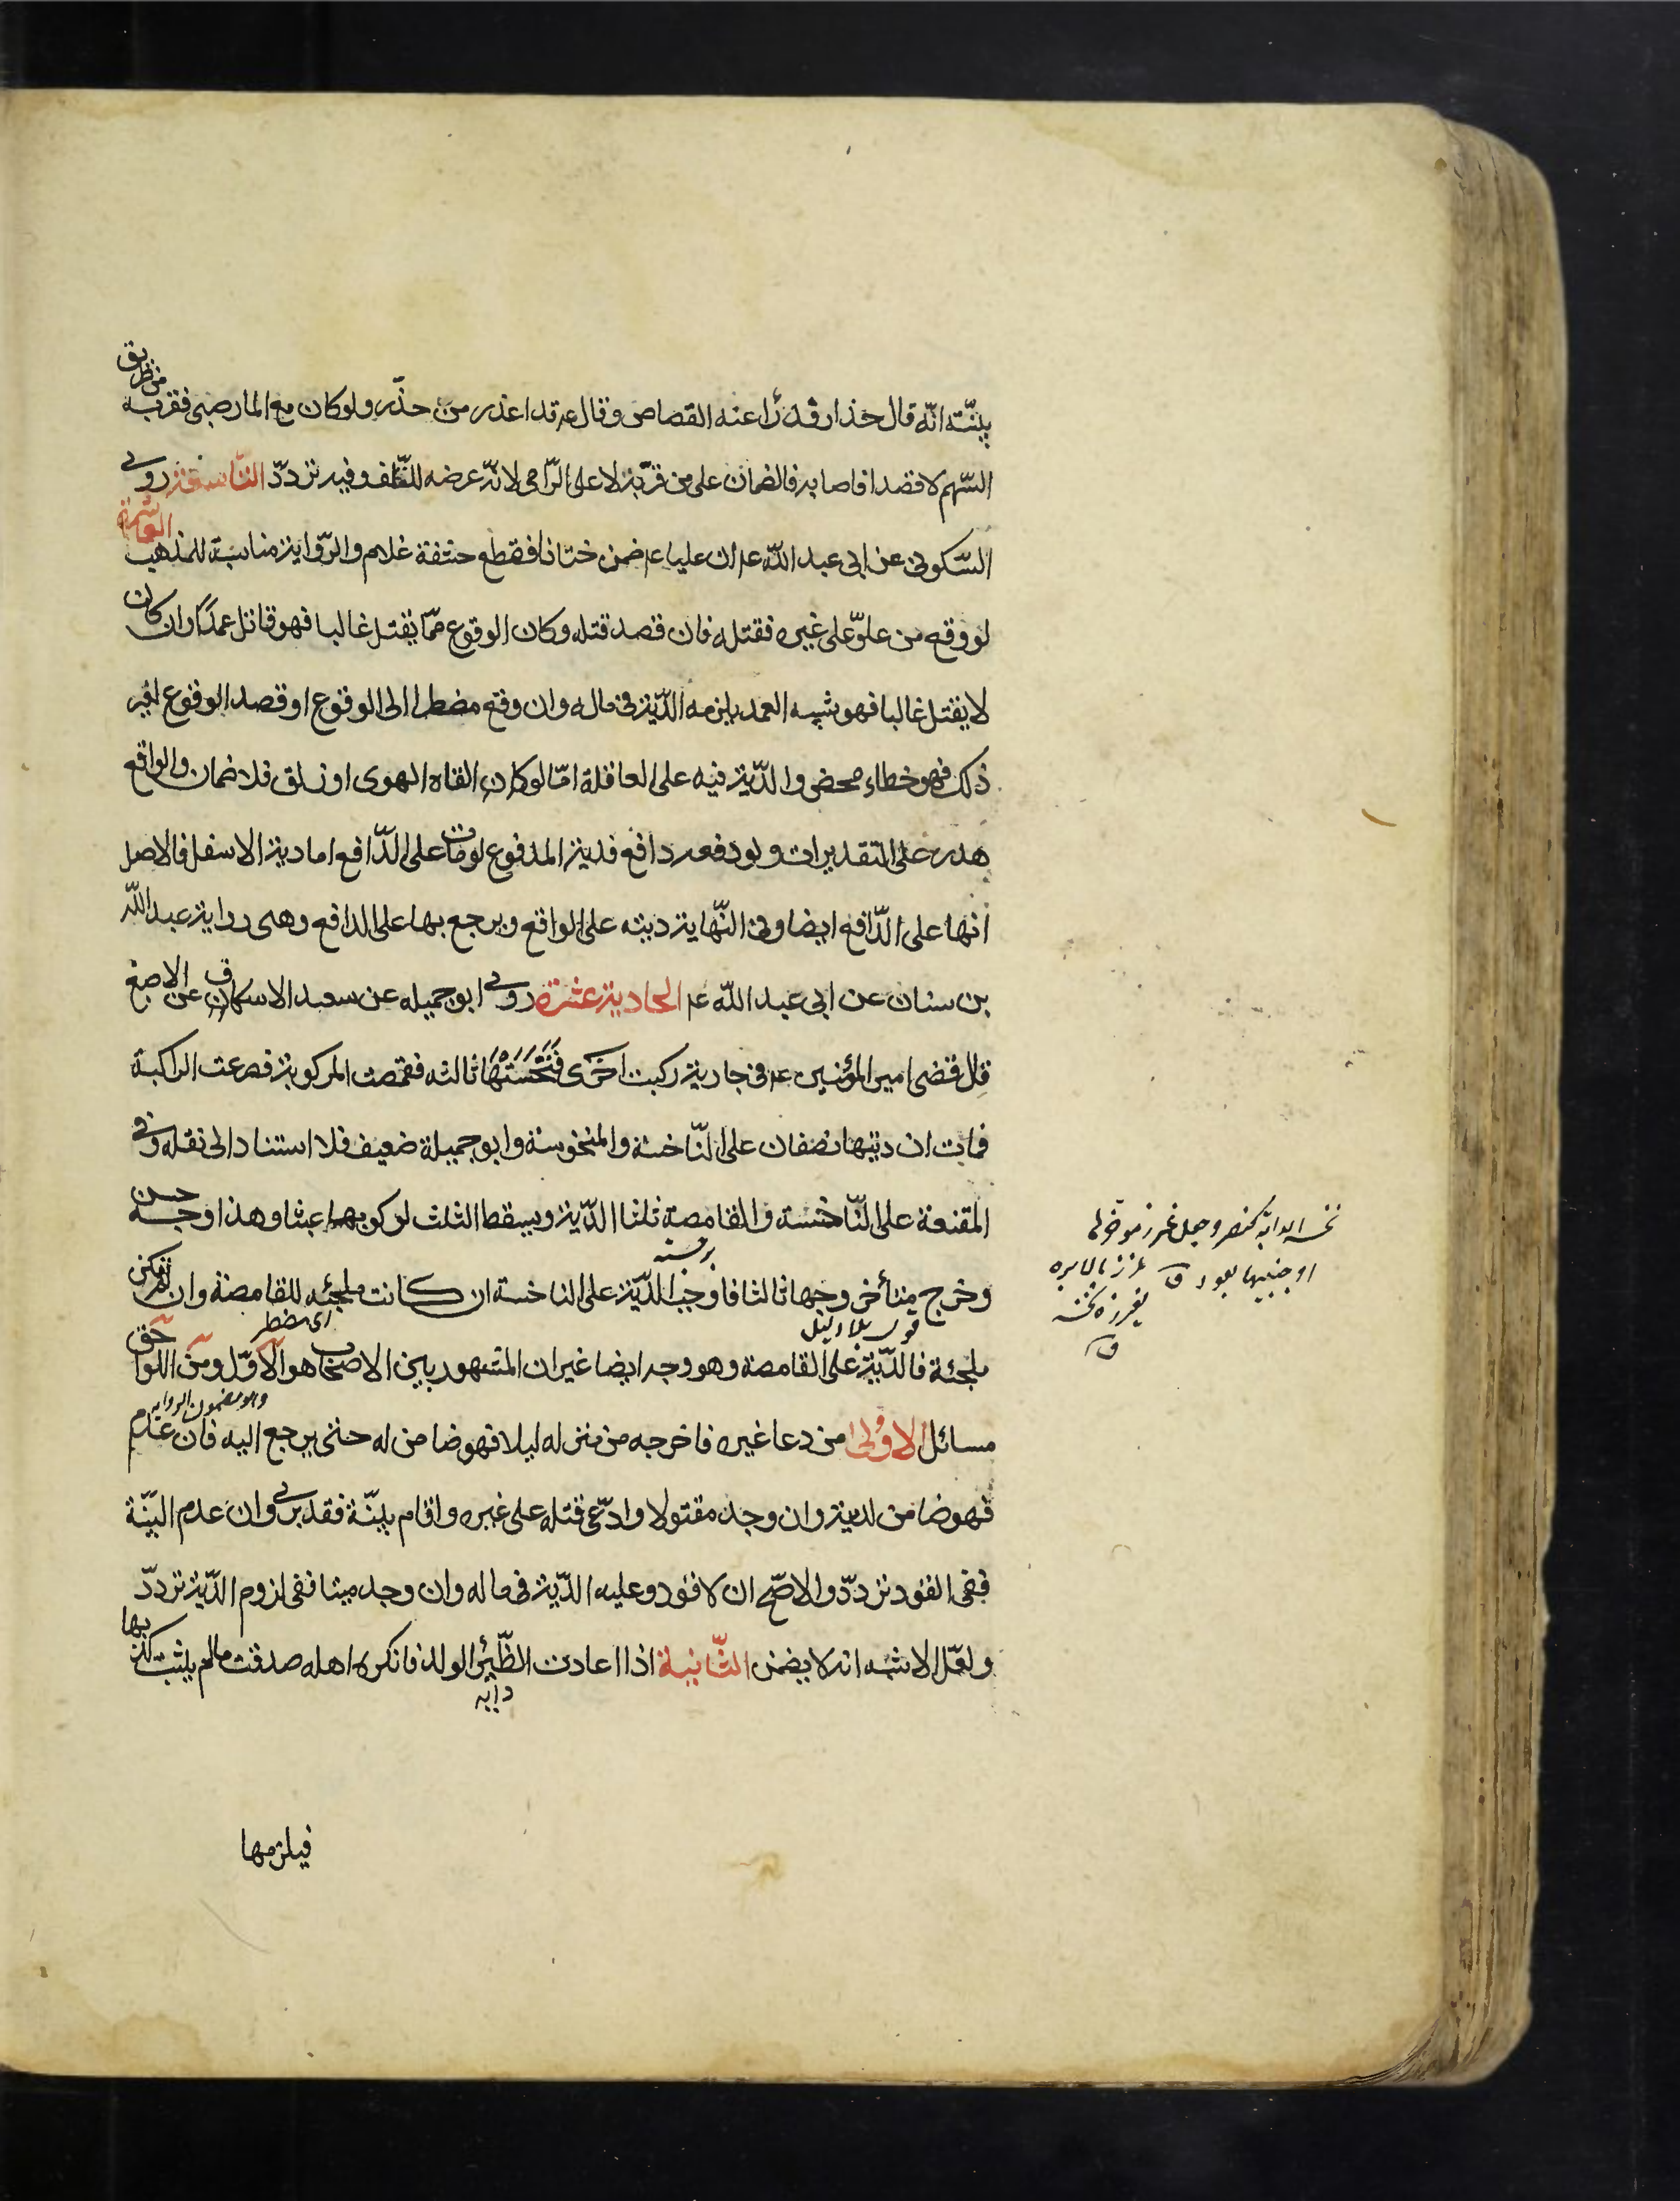 بينته انّه قال حذار فدرأ عنه القصاص وقال ع قد اعذر من حذّر ولو كان مع المار صبى فقربه من طريق
السّهم لا قصدا فاصابه فالضمان على من قرّبه لا على الرّامى لانّه عرضه للتّلف وفيه تردّد التّاسعة روى
السّكونى عن ابى عبد اللّه ع ان عليا ع ضمن ختانا قطع حشفة غلام والرّواية مناسبة للمذهب العاشرة
لو وقع من علوّ على غيره فقتله فان قصد قتله وكان الوقوع ممّا يقتل غالبا فهو قاتل عمدًا وان كان
لا يقتل غالبا فهو شبيه العمد يلزمه الدّية فى ماله وان وقع مضطرا الى الوقوع او قصد الوقوع لغير
ذلك فهو خطاء محض والدّية فيه على العاقلة امّا لو كان القاه الهوى او زلق فلا ضمان والواقع
هدر على التقديرات ولو دفعه دافع فدية المدفوع لو مات على الدّافع اما دية الاسفل فالاصل
انها على الدّافع ايضا وفى النّهاية ديته على الواقع ويرجع بها على الدافع وهى رواية عبد اللّه
بن سنان عن ابى عبد اللّه ع الحادية عشرة روى ابو جميله عن سعد الاسكاف عن الاصبغ
قال قضى امير المؤمنين ع فى جارية ركبت اخرى فَنَخَسَتْهَا ثالثه فقمصت المركوبة فصرعت الراكبة
فماتت ان ديتها نصفان على النّاخسة والمنخوسة وابو جميلة ضعيف فلا استناد الى نقله وفى
المقنعة على النّاخسة والقامصة ثلثا الدّية ويسقط الثلث لركوبها عبثا وهذا وجه حسن
وخرج متأخر وجها ثالثا فاوجب الدّية على الناخسة ان كانت ملجئه للقامصة وان لم تكن
ملجئة فالدّية على القامصة وهو وجه ايضا غير ان المشهور بين الاصحاب هو الاوّل ومن اللواحق
اى مضطر
وهو مضمون الروايه
مسائل الاولى من دعا غيره فاخرجه من منزله ليلا فهو ضامن له حتى يرجع اليه فان عدم
فهو ضامن لديته وان وجد مقتولا وادّعى قتله على غيره واقام بيّنة فقد برى وان عدم البيّنة
ففى القود تردّد والاصحّ ان لا قود وعليه الدّية فى ماله وان وجد ميتا ففى لزوم الدّية تردّد
ولعّل الاشبه انه لا يضمن الثّانية اذا اعادت الظّئر الولد فانكره اهله صدقت ما لم يثبت كذبها
دايه
فيلزمها
نخس الدابة كنصر وجعل غرز موخرها
او جنبيها بعود ق